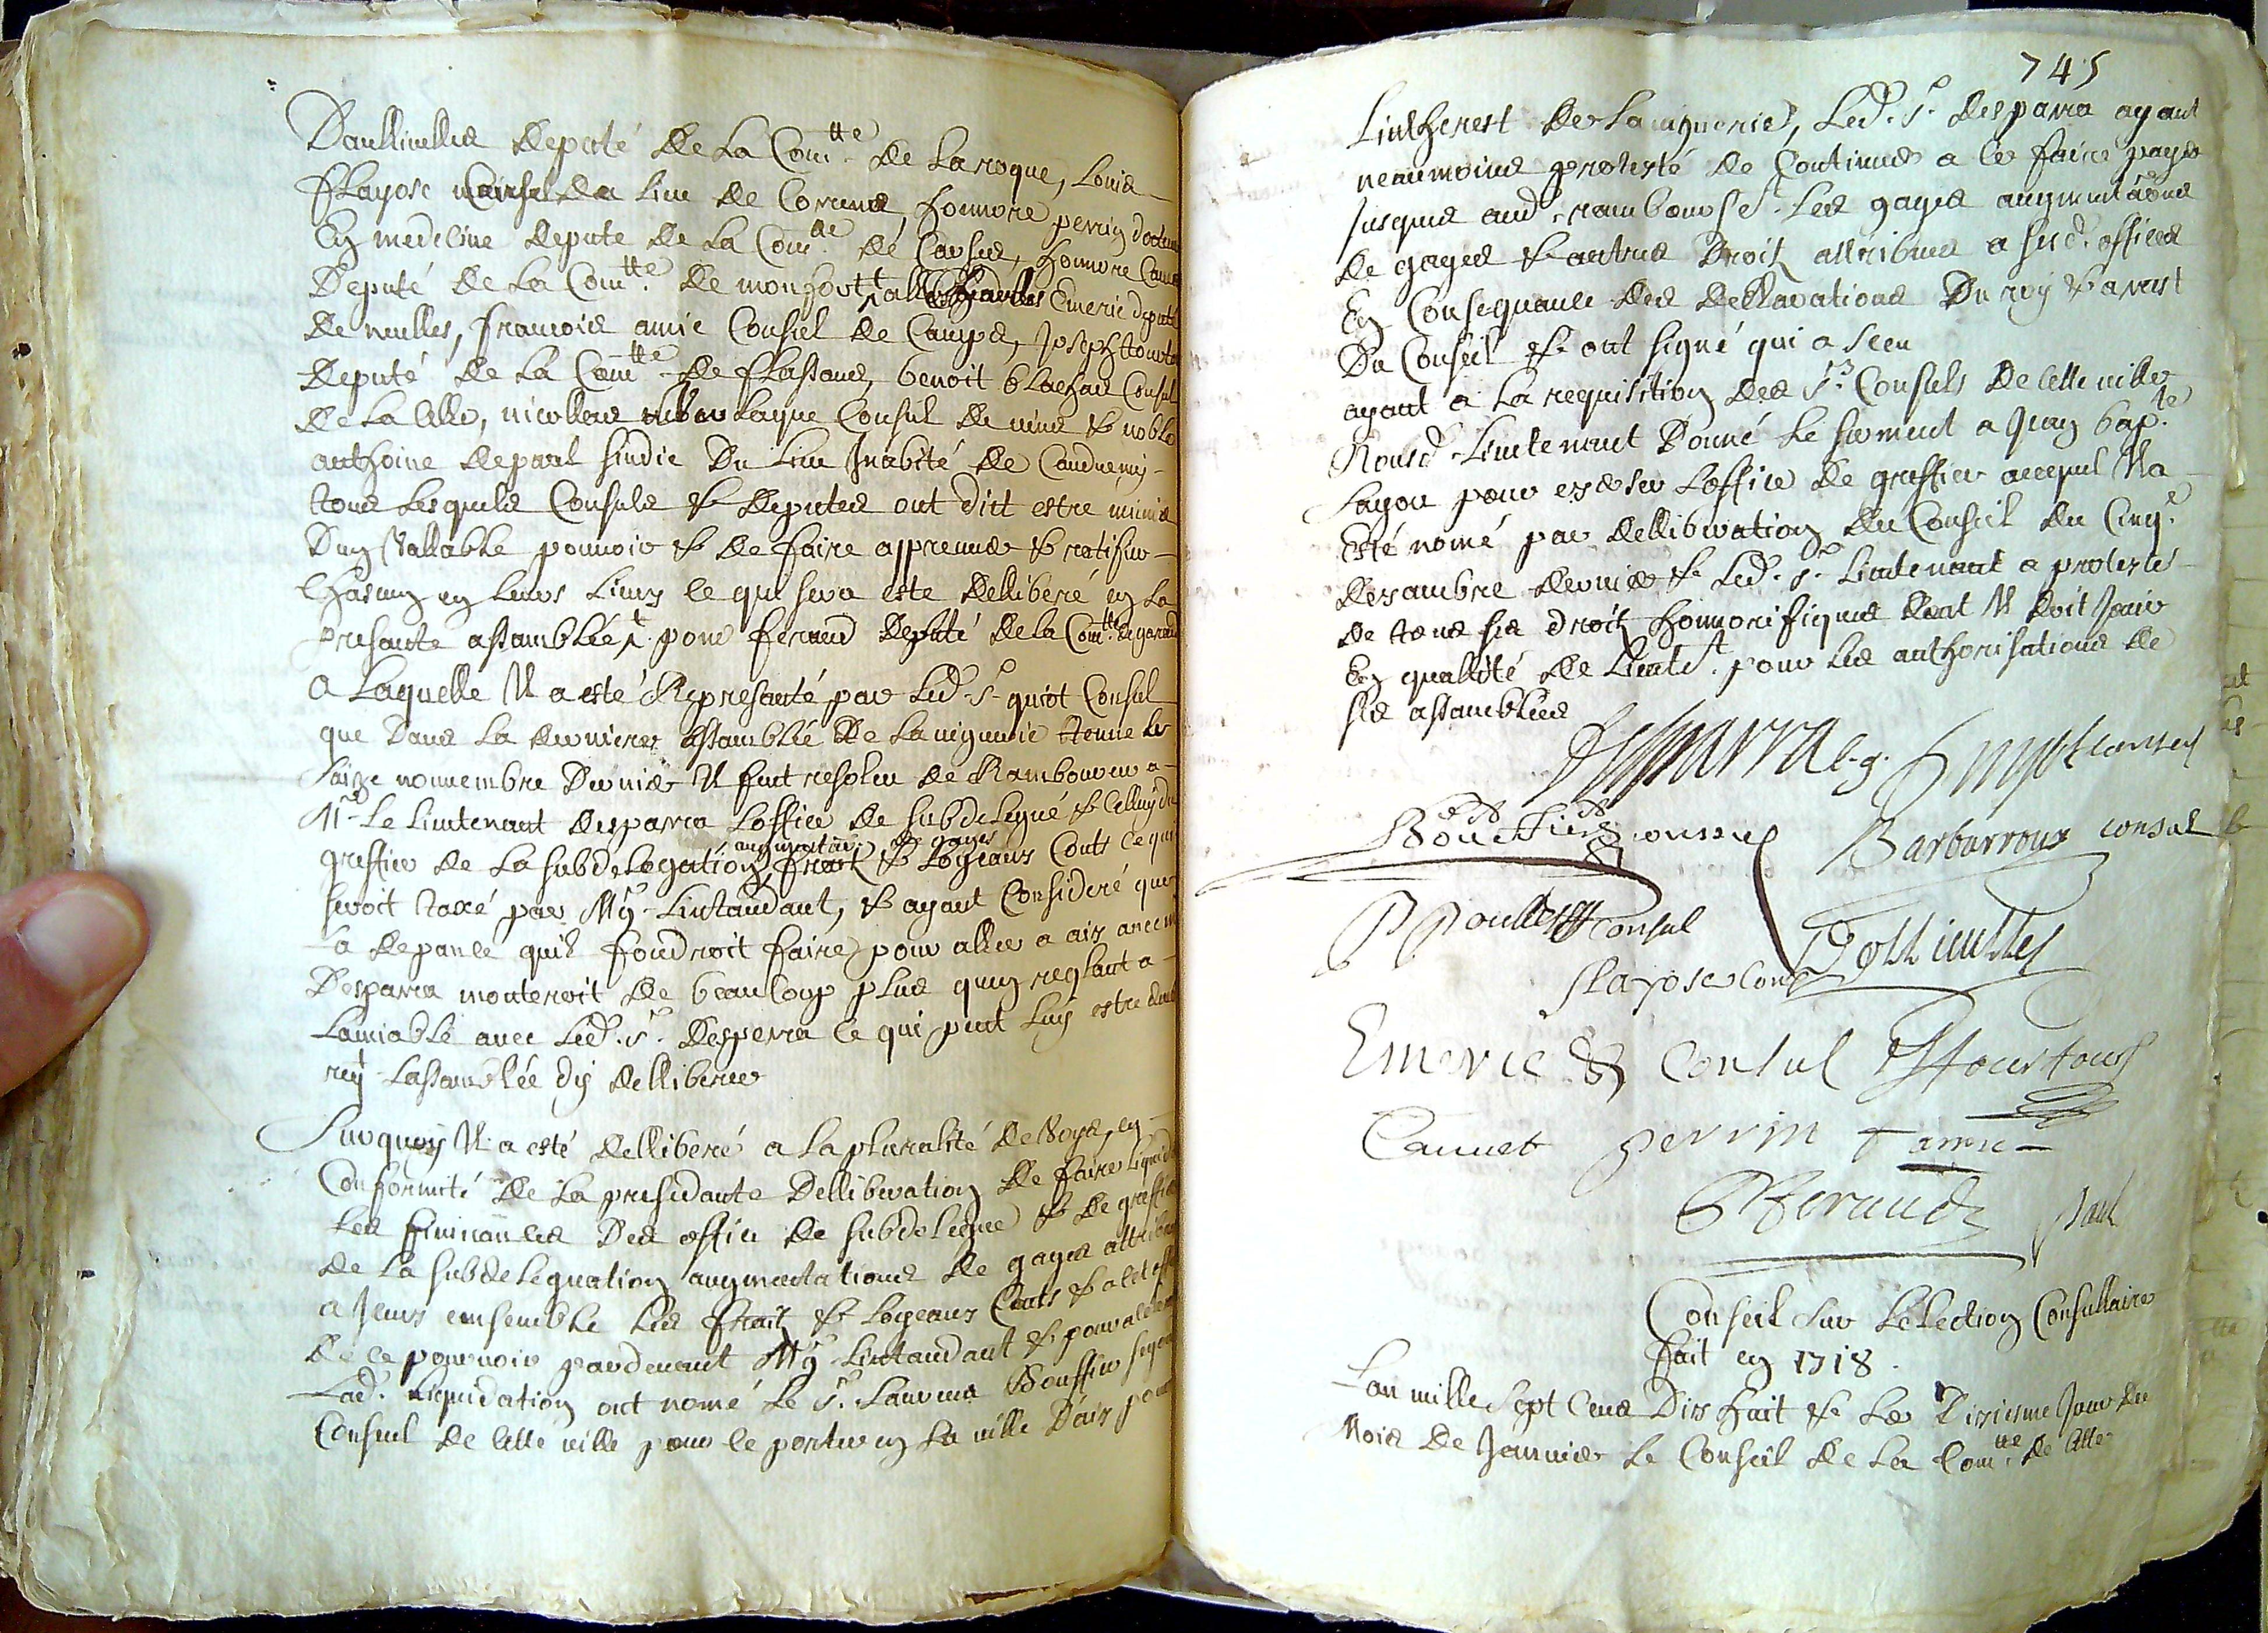 Daullieulles deputé de la Com.tte de la roque, Louis
flayosc Consul du lieu de Correns, honnore perrin docteur
en medecine depute de la Com.tte de Carses, honnore Cauvet
Deputé de la Com.tte de monfort, Emeric deputé
de neulles, francois amic Consul de Camps, Joseph tourtou
deputé de la Com.tte de flassans, benoit blachas Consul
de la Celle, nicollas laque Consul de vins & noble
anthoine depaul sindic du lieu Inabité de Caudueny
tous lesquels Consuls & deputes ont ditt estre munis
Dun Vallable pouvoir & de faire appreuver & ratifier
Chascun en leurs lieux ce qui sera este delliberé en la
presante assamblée pour feraud deputé de la Com.tte de gareoul
a Laquelle Il a esté Represanté par Led. Sr. guiot Consul
que dans la derniere assamblée de la viguerie tenue le
saize nouvembre dernier Il fut resoleu de Rambourcer a
Mr. Le Lieutenant desparra Loffice de subdelegué & Celluy de
augmentaõn de gages
greffier de la subdelegation, fraix & Logeaux Couts ce qui
seroit taxé par Mg. Lintandant, & ayant Consideré que
la depance quil foudroit faire pour aller a aix avec mr
Desparra monteroit de beaucoup plus quen reglant a
Lamiable avec Led. Sr. desparra ce qui peut luy estre deub
reqt. Lassamblée dy delliberer
Surquoy Il a esté delliberé a la pluralité de Voyx, en
Conformité de la presedante Delliberation de faire liquider
les finnances des office de subdelegue & de greffier
de la subdeleguation augmantations de gages attribues
a Jeux ensemble les fraix & Logeaux Couts & a cet effet
de ce pourvoir pardevant Mg. Lintandant & pour
Lad. liquidation ont nomé le Sr. Laurens Bouffier
Consul de cette ville pour ce porter en la ville Daix pour
745
Lintherest de la viguerie, Led. Sr. desparra ayant
neaumoins protesté de Continuer a ce faire payer
Jusques aud. ramboursst. les gages augmentaõns
de gages & autres Droits attribues a sesd. offices
En Consequance des declarations Du roy & arrest
Du Conseil & ont signé qui a sceu
ayant a la requisition des Srs. Consuls de cette ville
Nousd. Lieutenant Donné le serment a Jean bap.te
Layon pour exerser Loffice de greffier auquel Il a
Esté nomé par delliberation du Conseil du Cinq.e
desambre dernier & Led. Sr. Lieutenant a protesté
de tous ses droits honnorifiques dont Il doit Jouir
En quallité de Lieutt. pour les authorisations de
ses assamblées
Desparra l. g. Guyot consul
Bouffier consul Barbarroux consul
P Poulle Consul
flayosc Cons Dollieulles
Emeric Consul J Tourtour
Cauvet perrin F amic
Feraud Paul
Conseil sur Lelection Consullaire
fait en 1718.
Lan mille sept Cens Dix huit & le Dixiesme Jour du
Mois de Janvier le Conseil de la Com.tte de Cette